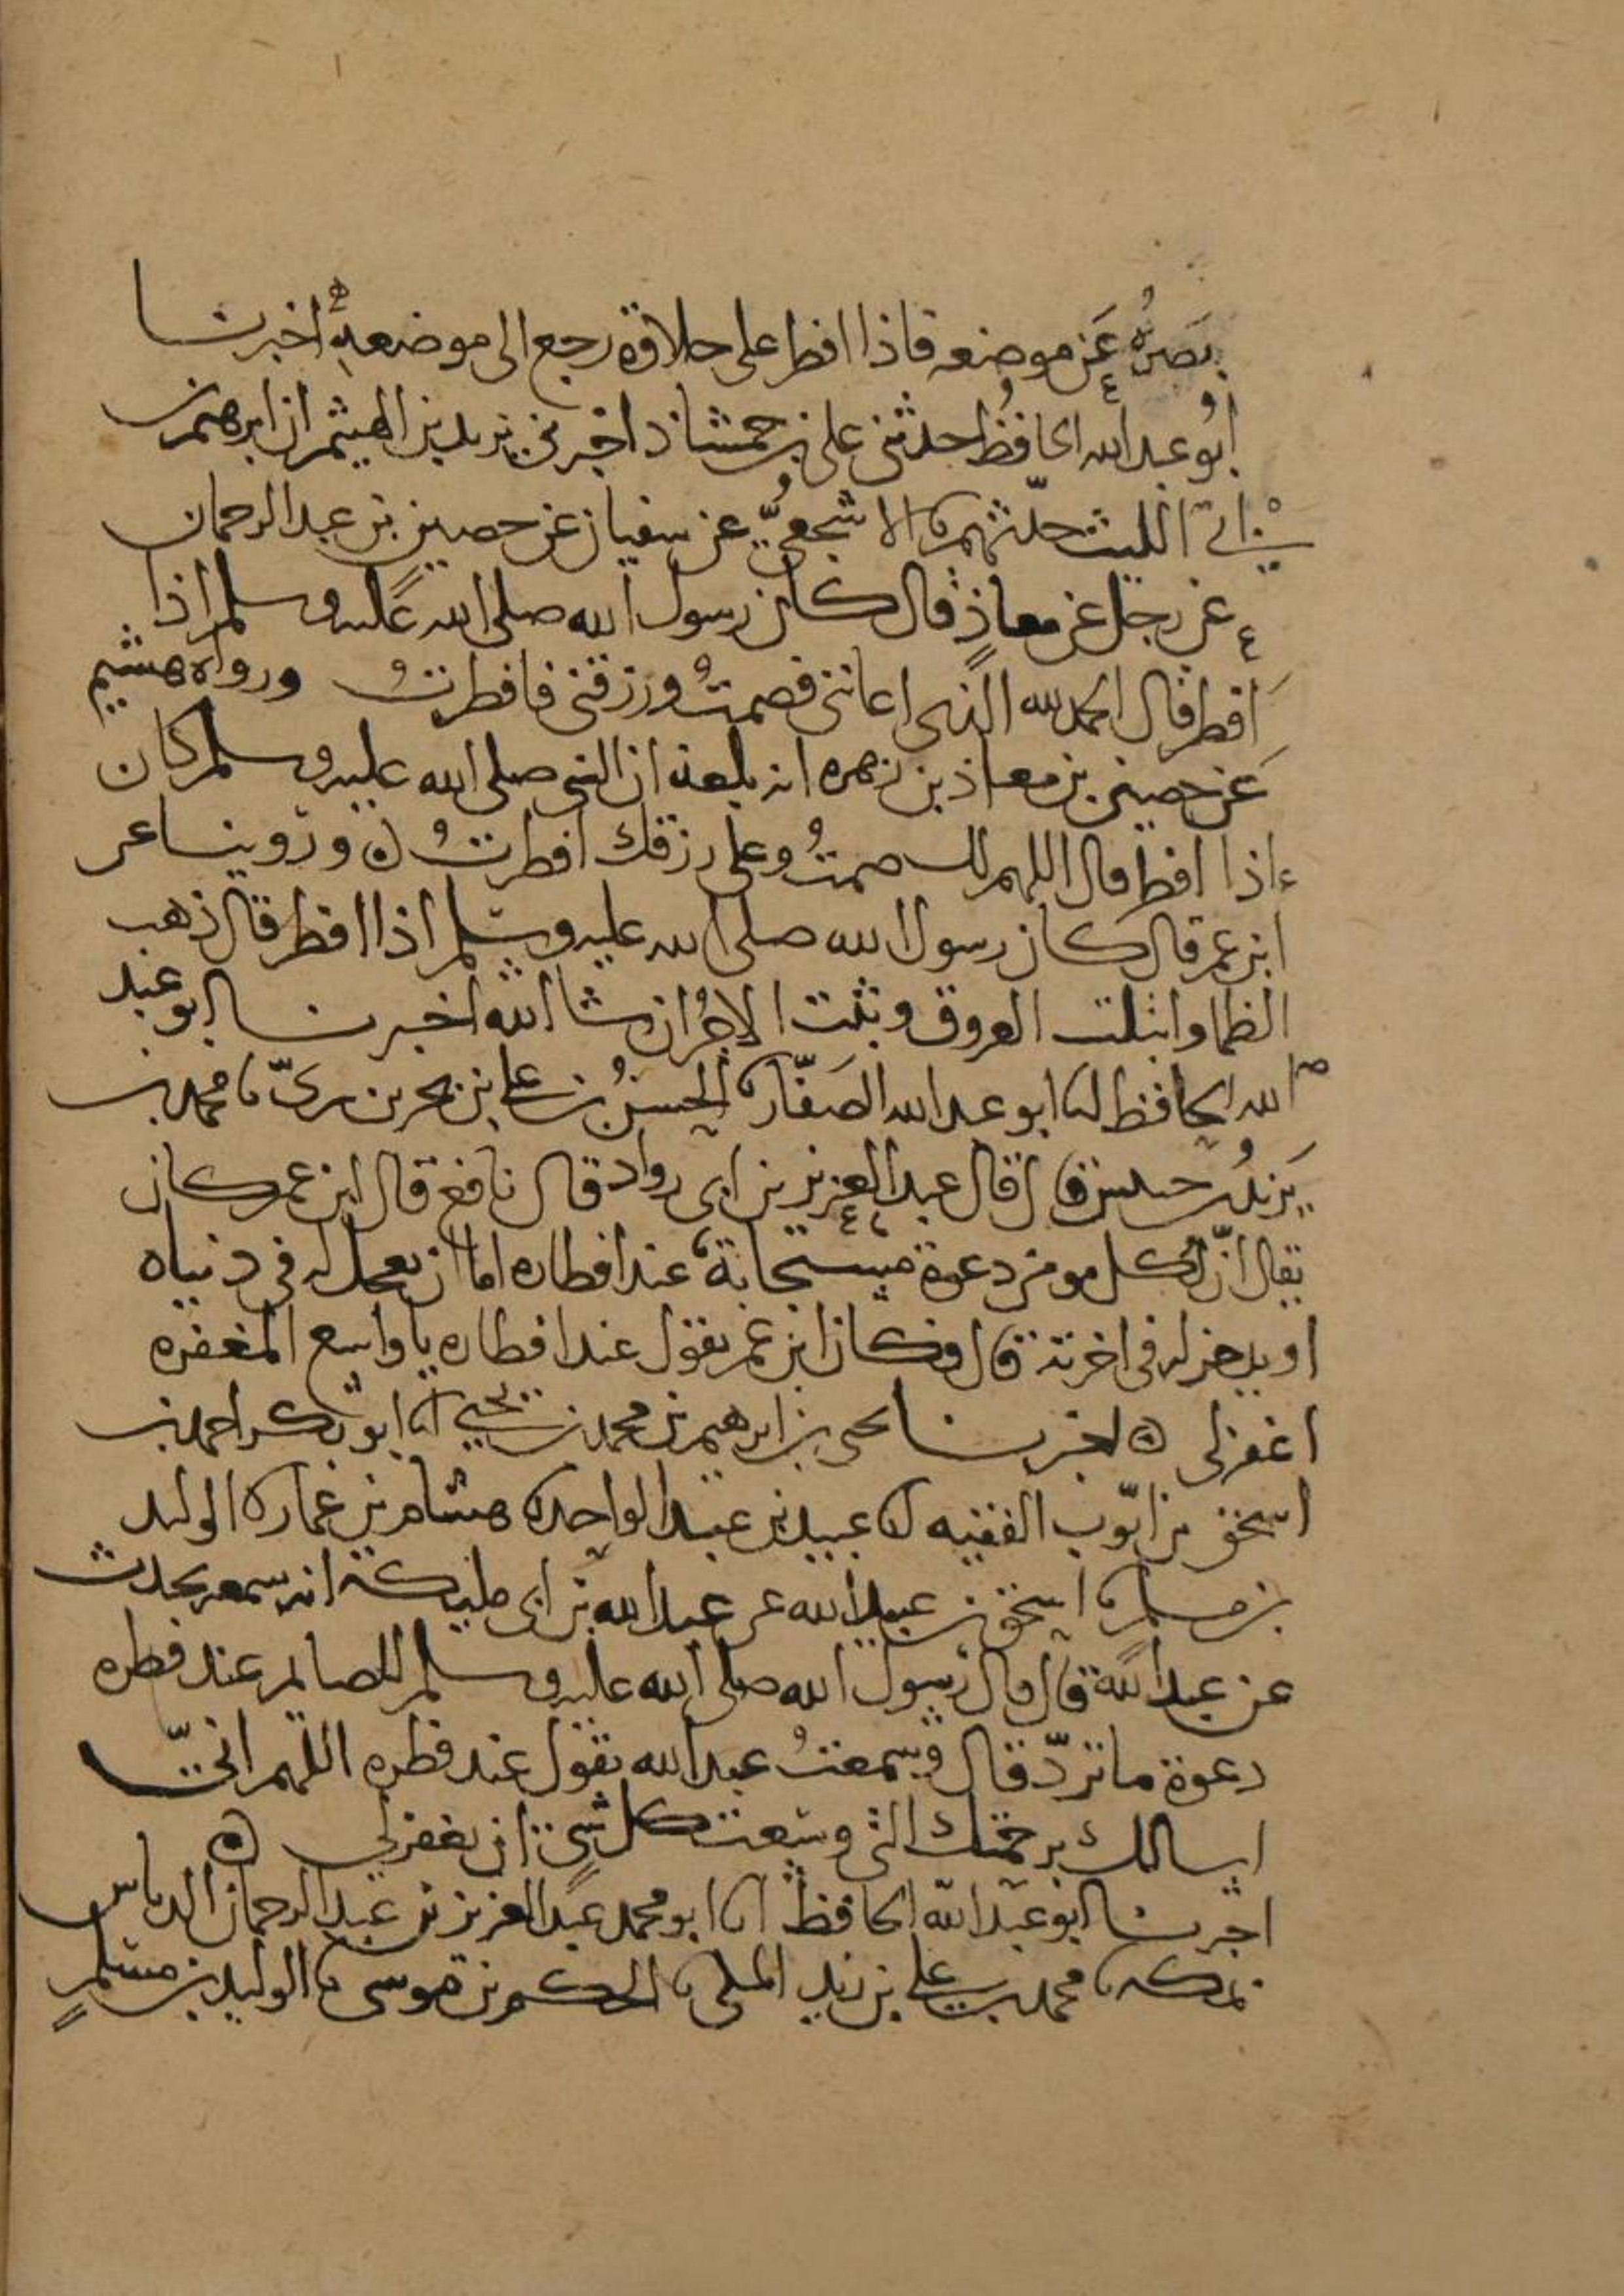 بصره عن موضعه فاذا افطر على حلاوة رجع الى موضعه اخبرنا
ابو عبد الله الحافظ حدثني علي بن حمشاذ اخبرني يزيد بن الهيثم ان ابرهيم بن
ابي الليث حدثهم نا الاشجعي عن سفيان عن حصين بن عبد الرحمان
عن رجل عن معاذ قال كان رسول الله صلى الله عليه وسلم اذا
افطر قال الحمد لله الذي اعانني فصمت ورزقني فافطرت ورواه هشيم
عن حصين بن معاذ بن زهره انه بلغه ان النبي صلى الله عليه وسلم كان
اذا افطر قال اللهم لك صمت وعلى رزقك افطرت ه وروينا عن
ابن عمر قال كان رسول الله صلى الله عليه وسلم اذا افطر قال ذهب
الظما وابتلت العروق وثبت الاجر ان شا الله اخبرنا ابو عبد
الله الحافظ انا ابو عبد الله الصفار نا الحسن بن علي بن بحر بن بري نا محمد بن
يزيد بن خنيس قال قال عبد العزيز بن ابي رواد قال نافع قال ابن عمر كان
يقال ان لكل مومن دعوة مستجابة عند افطاره اما ان يعجل له في دنياه
او يدخر له في اخرته قال فكان ابن عمر يقول عند افطاره يا واسع المغفره
اغفر لي ه اخبرنا يحيى بن ابرهيم بن محمد بن يحيى انا ابو بكر احمد بن
اسحق بن ايوب الفقيه انا عبيد بن عبد الواحد نا هشام بن عمار نا الوليد
بن مسلم نا اسحق بن عبيد الله عن عبد الله بن ابي مليكة انه سمعه يحدث
عن عبد الله قال قال رسول الله صلى الله عليه وسلم للصايم عند فطره
دعوة ما ترد قال وسمعت عبد الله يقول عند فطره اللهم اني
اسالك برحمتك التي وسعت كل شي ان تغفر لي ه
اخبرنا ابو عبد الله الحافظ انا ابو محمد عبد العزيز بن عبد الرحمان الدباس
بمكه نا محمد بن علي بن زيد المكي نا الحكم بن موسى نا الوليد بن مسلم